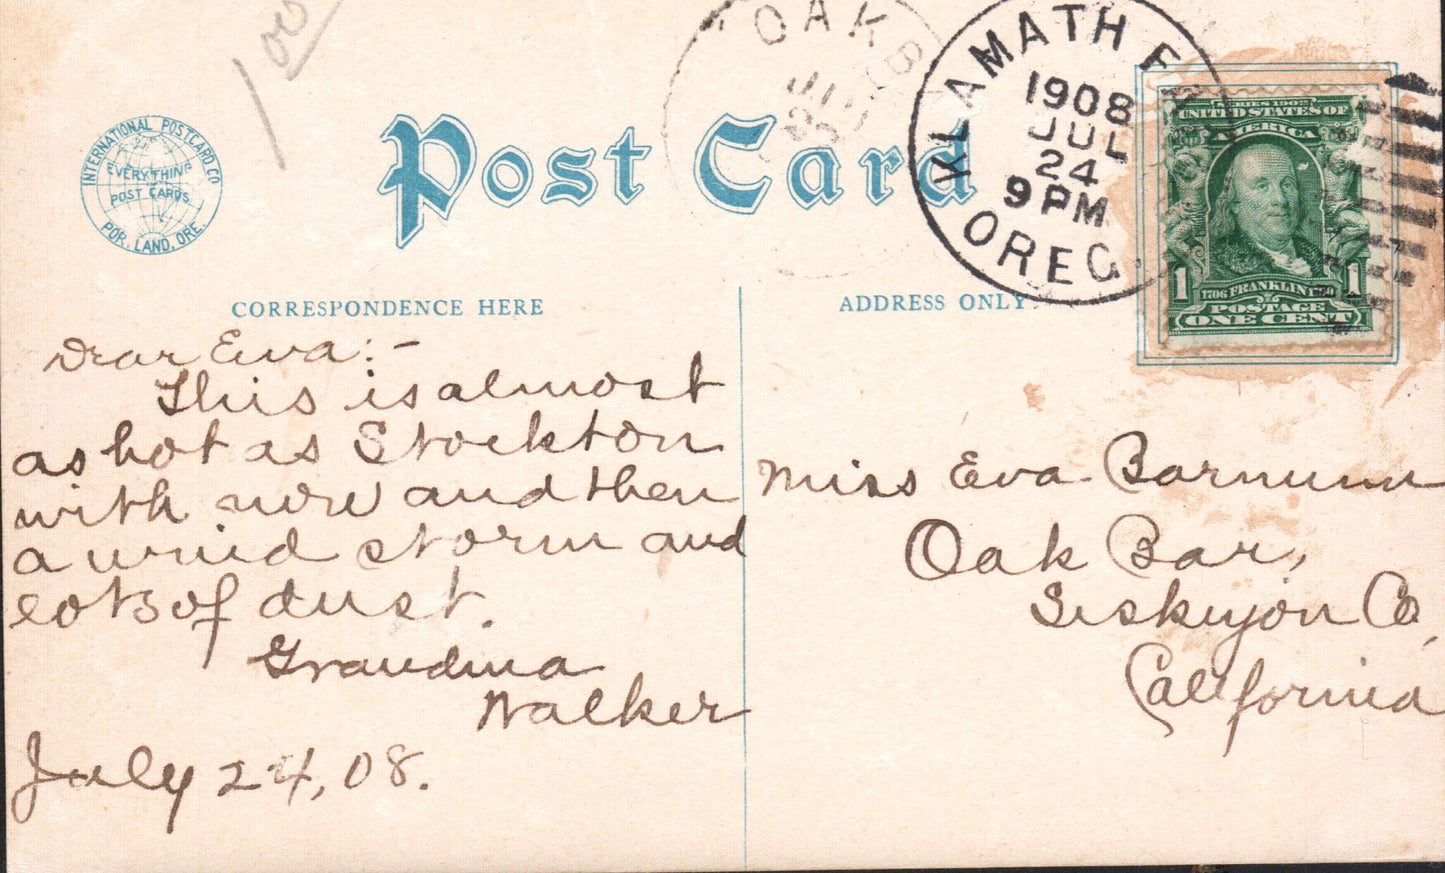 1.00
INTERNATIONAL POSTCARD CO.
EVERYTHING
IN
POST CARDS
PORTLAND, ORE.
Post Card
OAKB
KLAMATH F
1908
JUL
24
9 PM
OREG.
SERIES 1902
UNITED STATES OF
AMERICA
1 1
1706 FRANKLIN 1790
POSTAGE
ONE CENT
CORRESPONDENCE HERE
ADDRESS ONLY
Dear Eva:-
This is almost
as hot as Stockton
with now and then
a wind storm and
lots of dust.
Grandma
Walker
July 24, 08.
Miss Eva Barnum
Oak Bar,
Siskuyon Co,
California